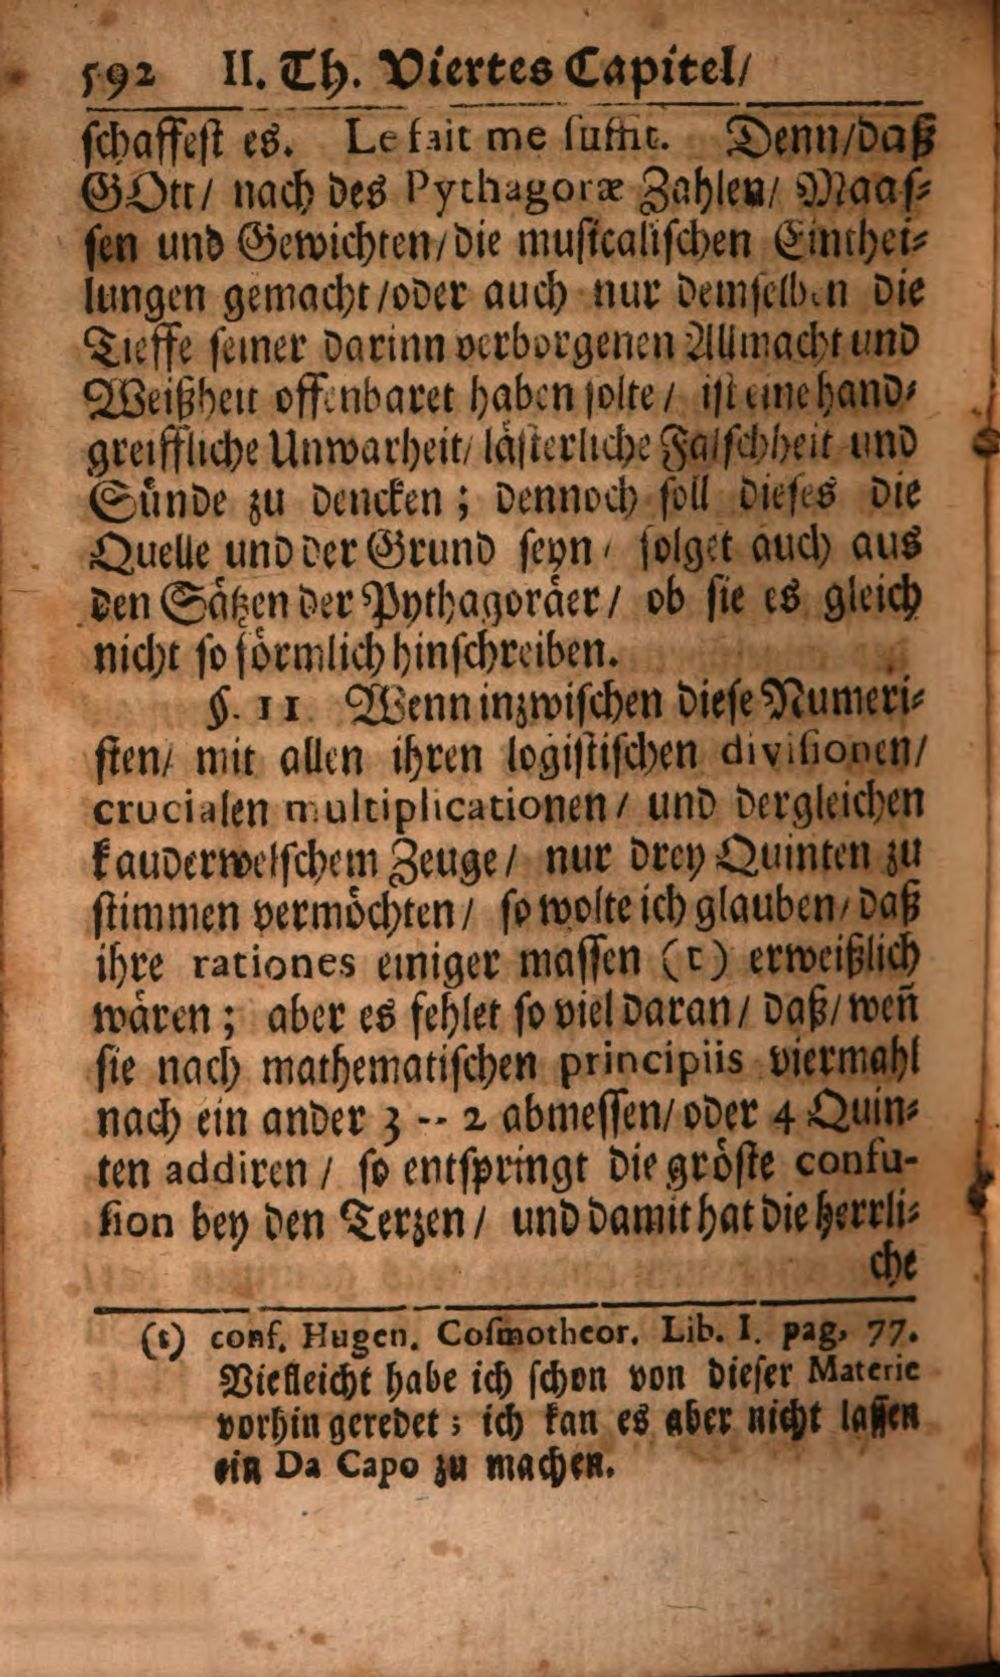 592 II. Th. Viertes Capitel/
schaffest es. Le fait me suffit. Denn/daß
GOtt/ nach des Pythagoræ Zahlen/ Maas-
sen und Gewichten/die musicalischen Einthei-
lungen gemacht/oder auch nur demselben die
Tieffe seiner darinn verborgenen Allmacht und
Weißheit offenbaret haben solte/ ist eine hand-
greiffliche Unwarheit/ lästerliche Falschheit und
Sünde zu dencken; dennoch soll dieses die
Quelle und der Grund seyn/ folget auch aus
den Sätzen der Pythagoräer/ ob sie es gleich
nicht so förmlich hinschreiben.
§. 11 Wenn inzwischen diese Numeri-
sten/ mit allen ihren logistischen divisionen/
crucialen multiplicationen/ und dergleichen
kauderwelschem Zeuge/ nur drey Quinten zu
stimmen vermöchten/ so wolte ich glauben/ daß
ihre rationes einiger massen (t) erweißlich
wären; aber es fehlet so viel daran/ daß/ weñ
sie nach mathematischen principiis viermahl
nach ein ander 3 -- 2 abmessen/oder 4 Quin-
ten addiren/ so entspringt die gröste confu-
sion bey den Terzen/ und damit hat die herrli-
che
(t) conf. Hugen. Cosmotheor. Lib. I. pag. 77.
Vielleicht habe ich schon von dieser Materie
vorhin geredet; ich kan es aber nicht lassen
ein Da Capo zu machen.